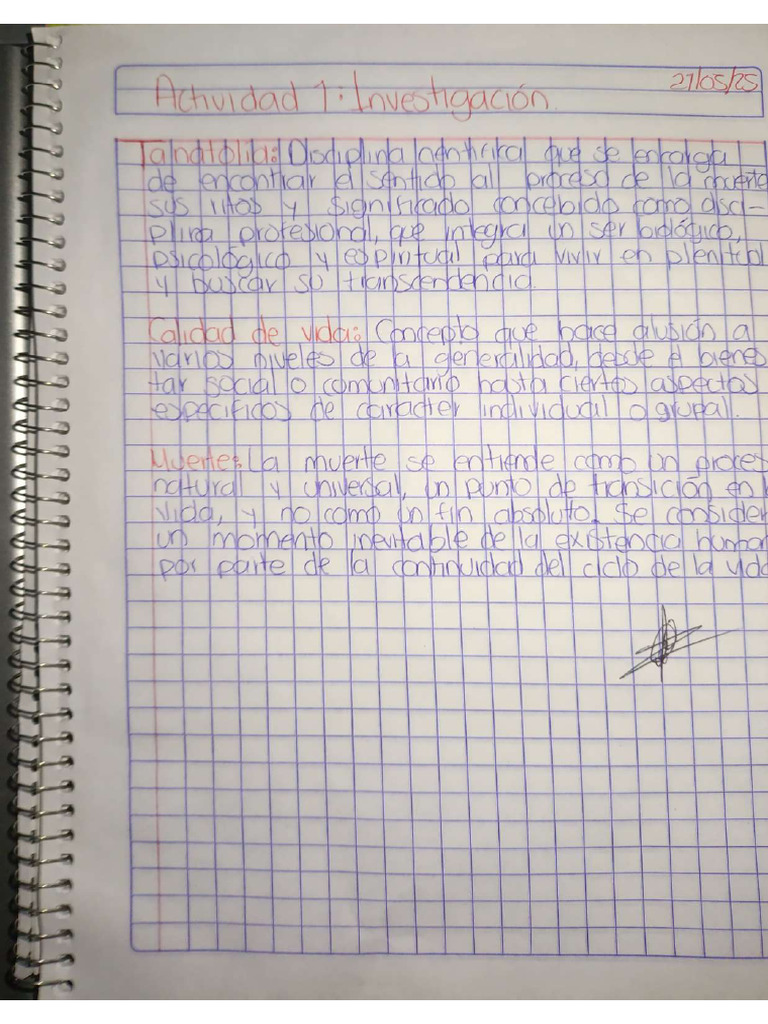 Actividad 1: Investigación.
27/05/25
Tanatolia: Disciplina cientifica que se encarga
de encontrar el sentido al proceso de la muerte
sus ritos y significado concebido como disci-
plina profesional, que integra un ser biológico,
psicológico y espiritual para vivir en plenitud
y buscar su transcendencia.
Calidad de vida: Concepto que hace alusión a
varios niveles de la generalidad, desde el bienes
tar social o comunitario hasta ciertos aspectos
especificos de caracter individual o grupal.
Muerte: La muerte se entiende como un proces
natural y universal, un punto de transición en l
vida, y no como un fin absoluto. Se consider
un momento inevitable de la existencia human
por parte de la continuidad del ciclo de la vida